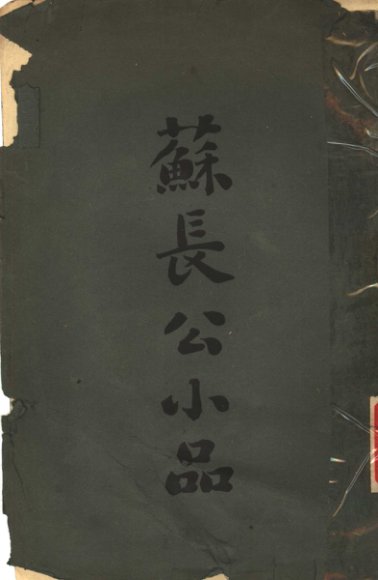 蘇長公小品